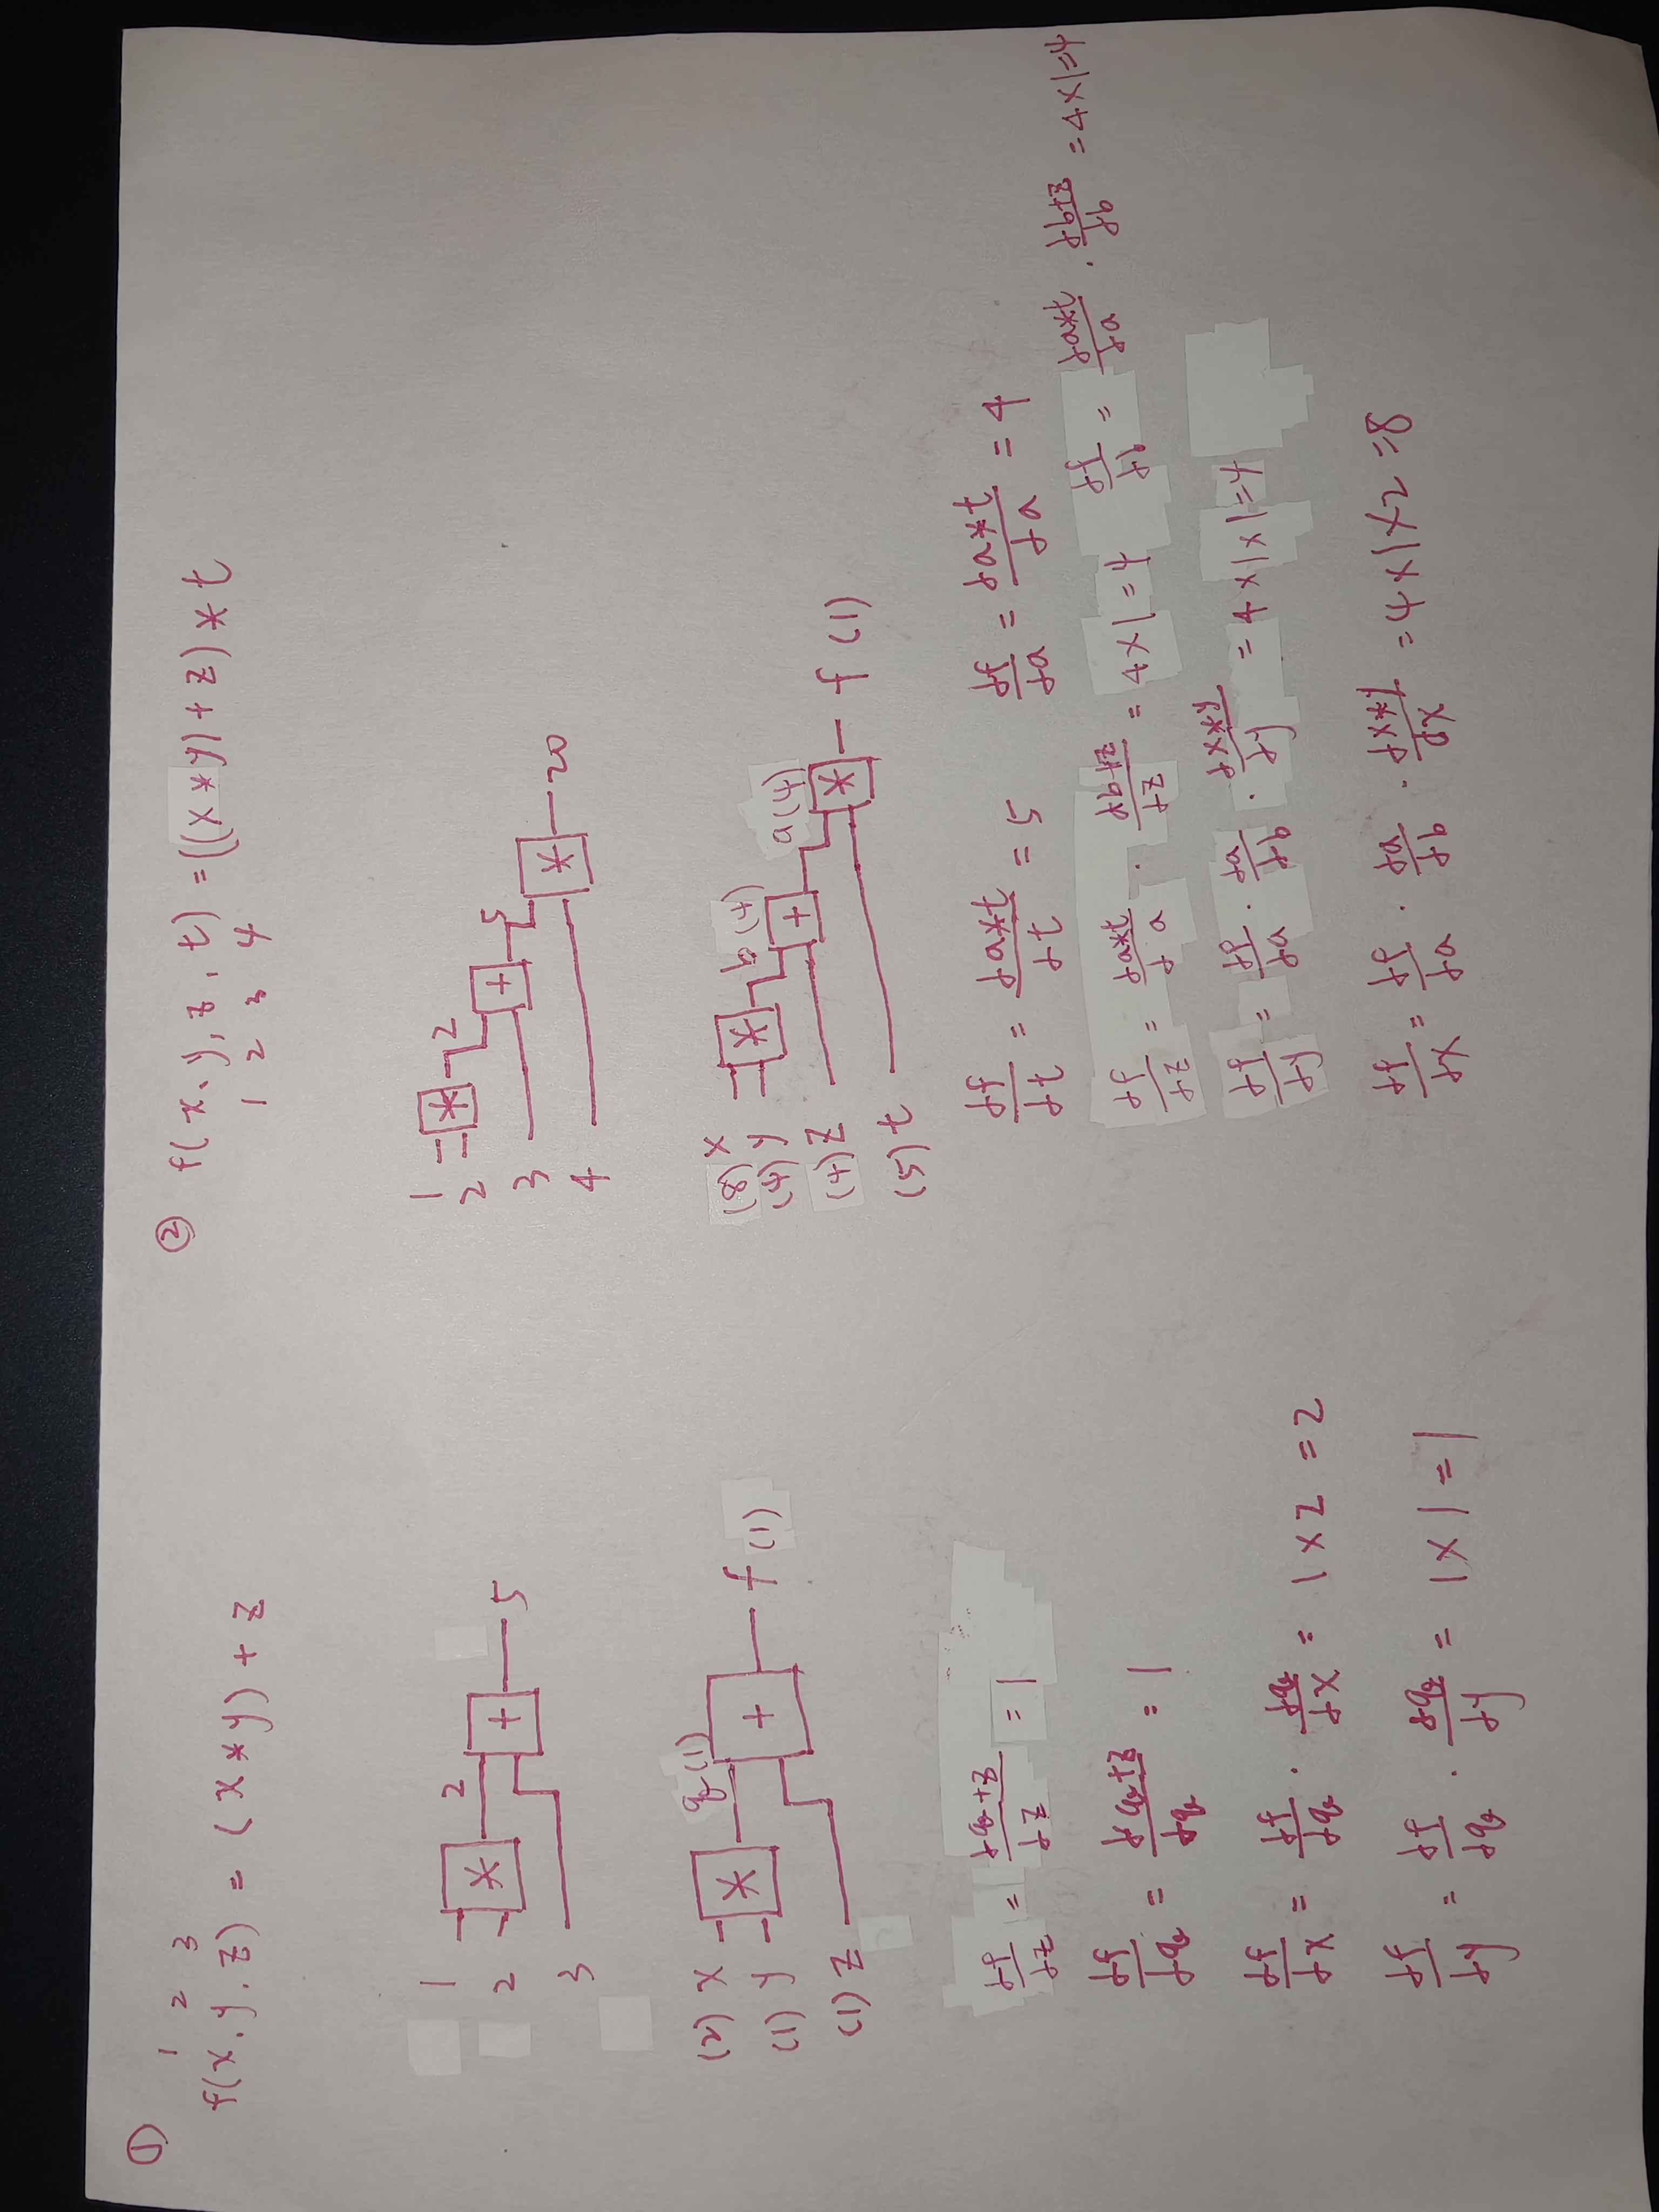 ①
1 2 3
f(x, y, z) = (x * y) + z
1
2
3
*
2
+
5
(2) x
(1) y
(1) z
*
q(1)
+
f(1)
df/dz = dq+z/dz = 1
df/dq = dq+z/dq = 1
df/dx = df/dq · dq/dx = 1 × 2 = 2
df/dy = df/dq · dq/dy = 1 × 1 = 1
② f(x, y, z, t) = ((x * y) + z) * t
1 2 3 4
1
2
3
4
*
2
+
5
*
20
(8) x
(4) y
(4) z
(5) t
*
b(4)
+
a(4)
*
f(1)
df/dt = da*t/dt = 5 df/da = da*t/da = 4
df/dz = da*t/da · db+z/dz = 4×1=4 df/db = da*t/da · db+z/db = 4×1=4
df/dy = df/da · da/db · dx*y/dy = 4×1×1=4
df/dx = df/da · da/db · dx*y/dx = 4×1×2=8